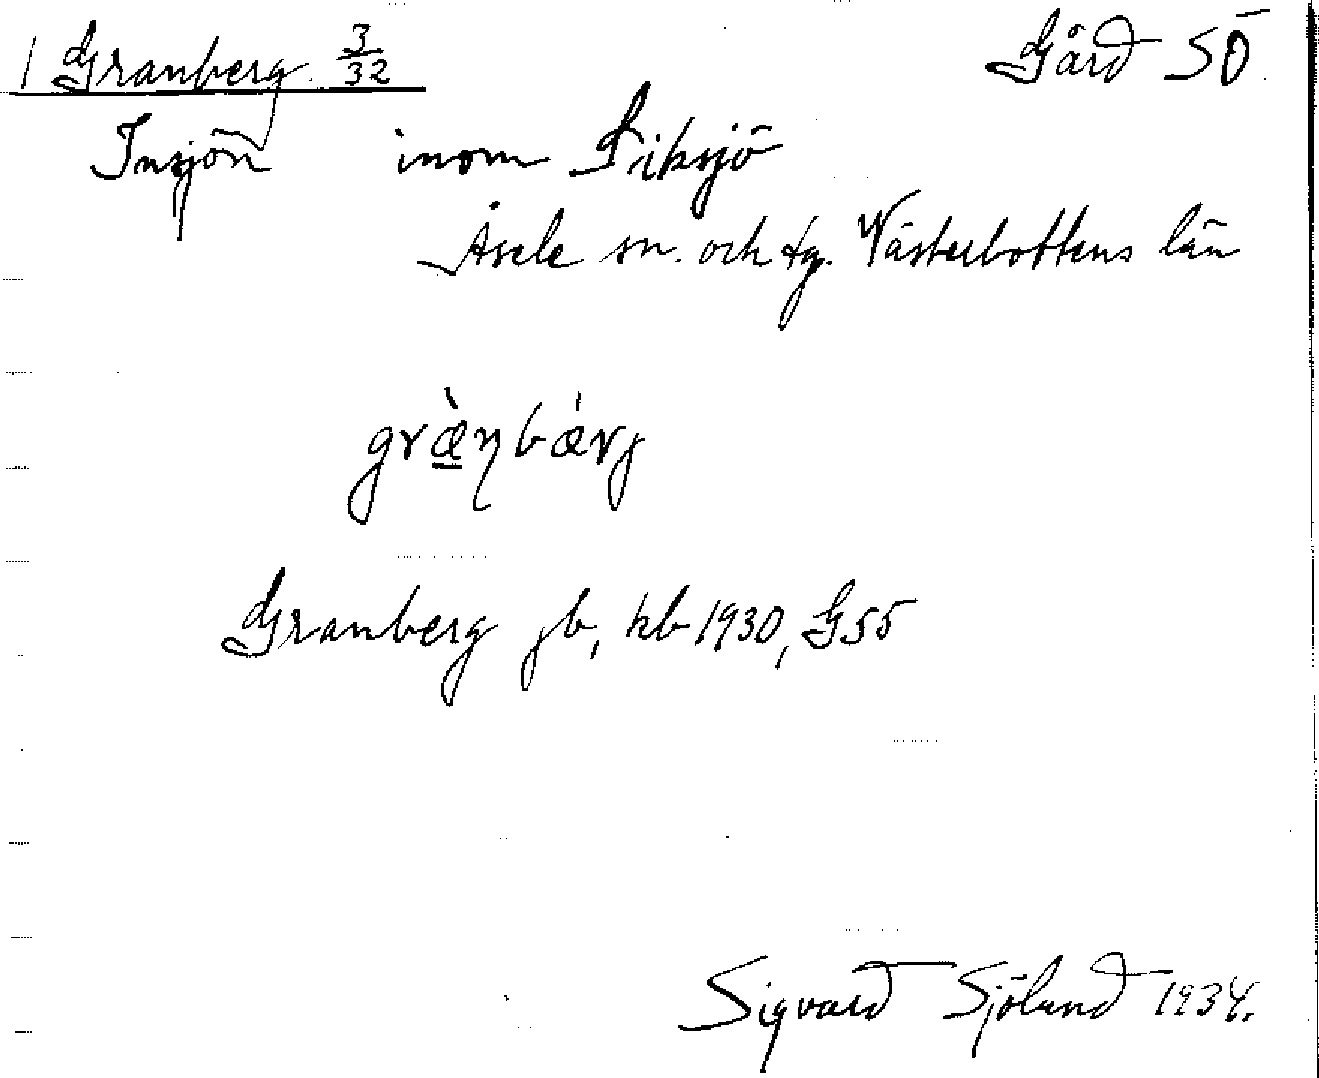 1 Granberg 3/32 Gård SÖ
Insjön inom Siksjö
Åsele sn. och tg. Västerbottens län
græ̀ŋbǽrj
Granberg jb, hb 1930, G55
Sigvard Sjölund 1934.